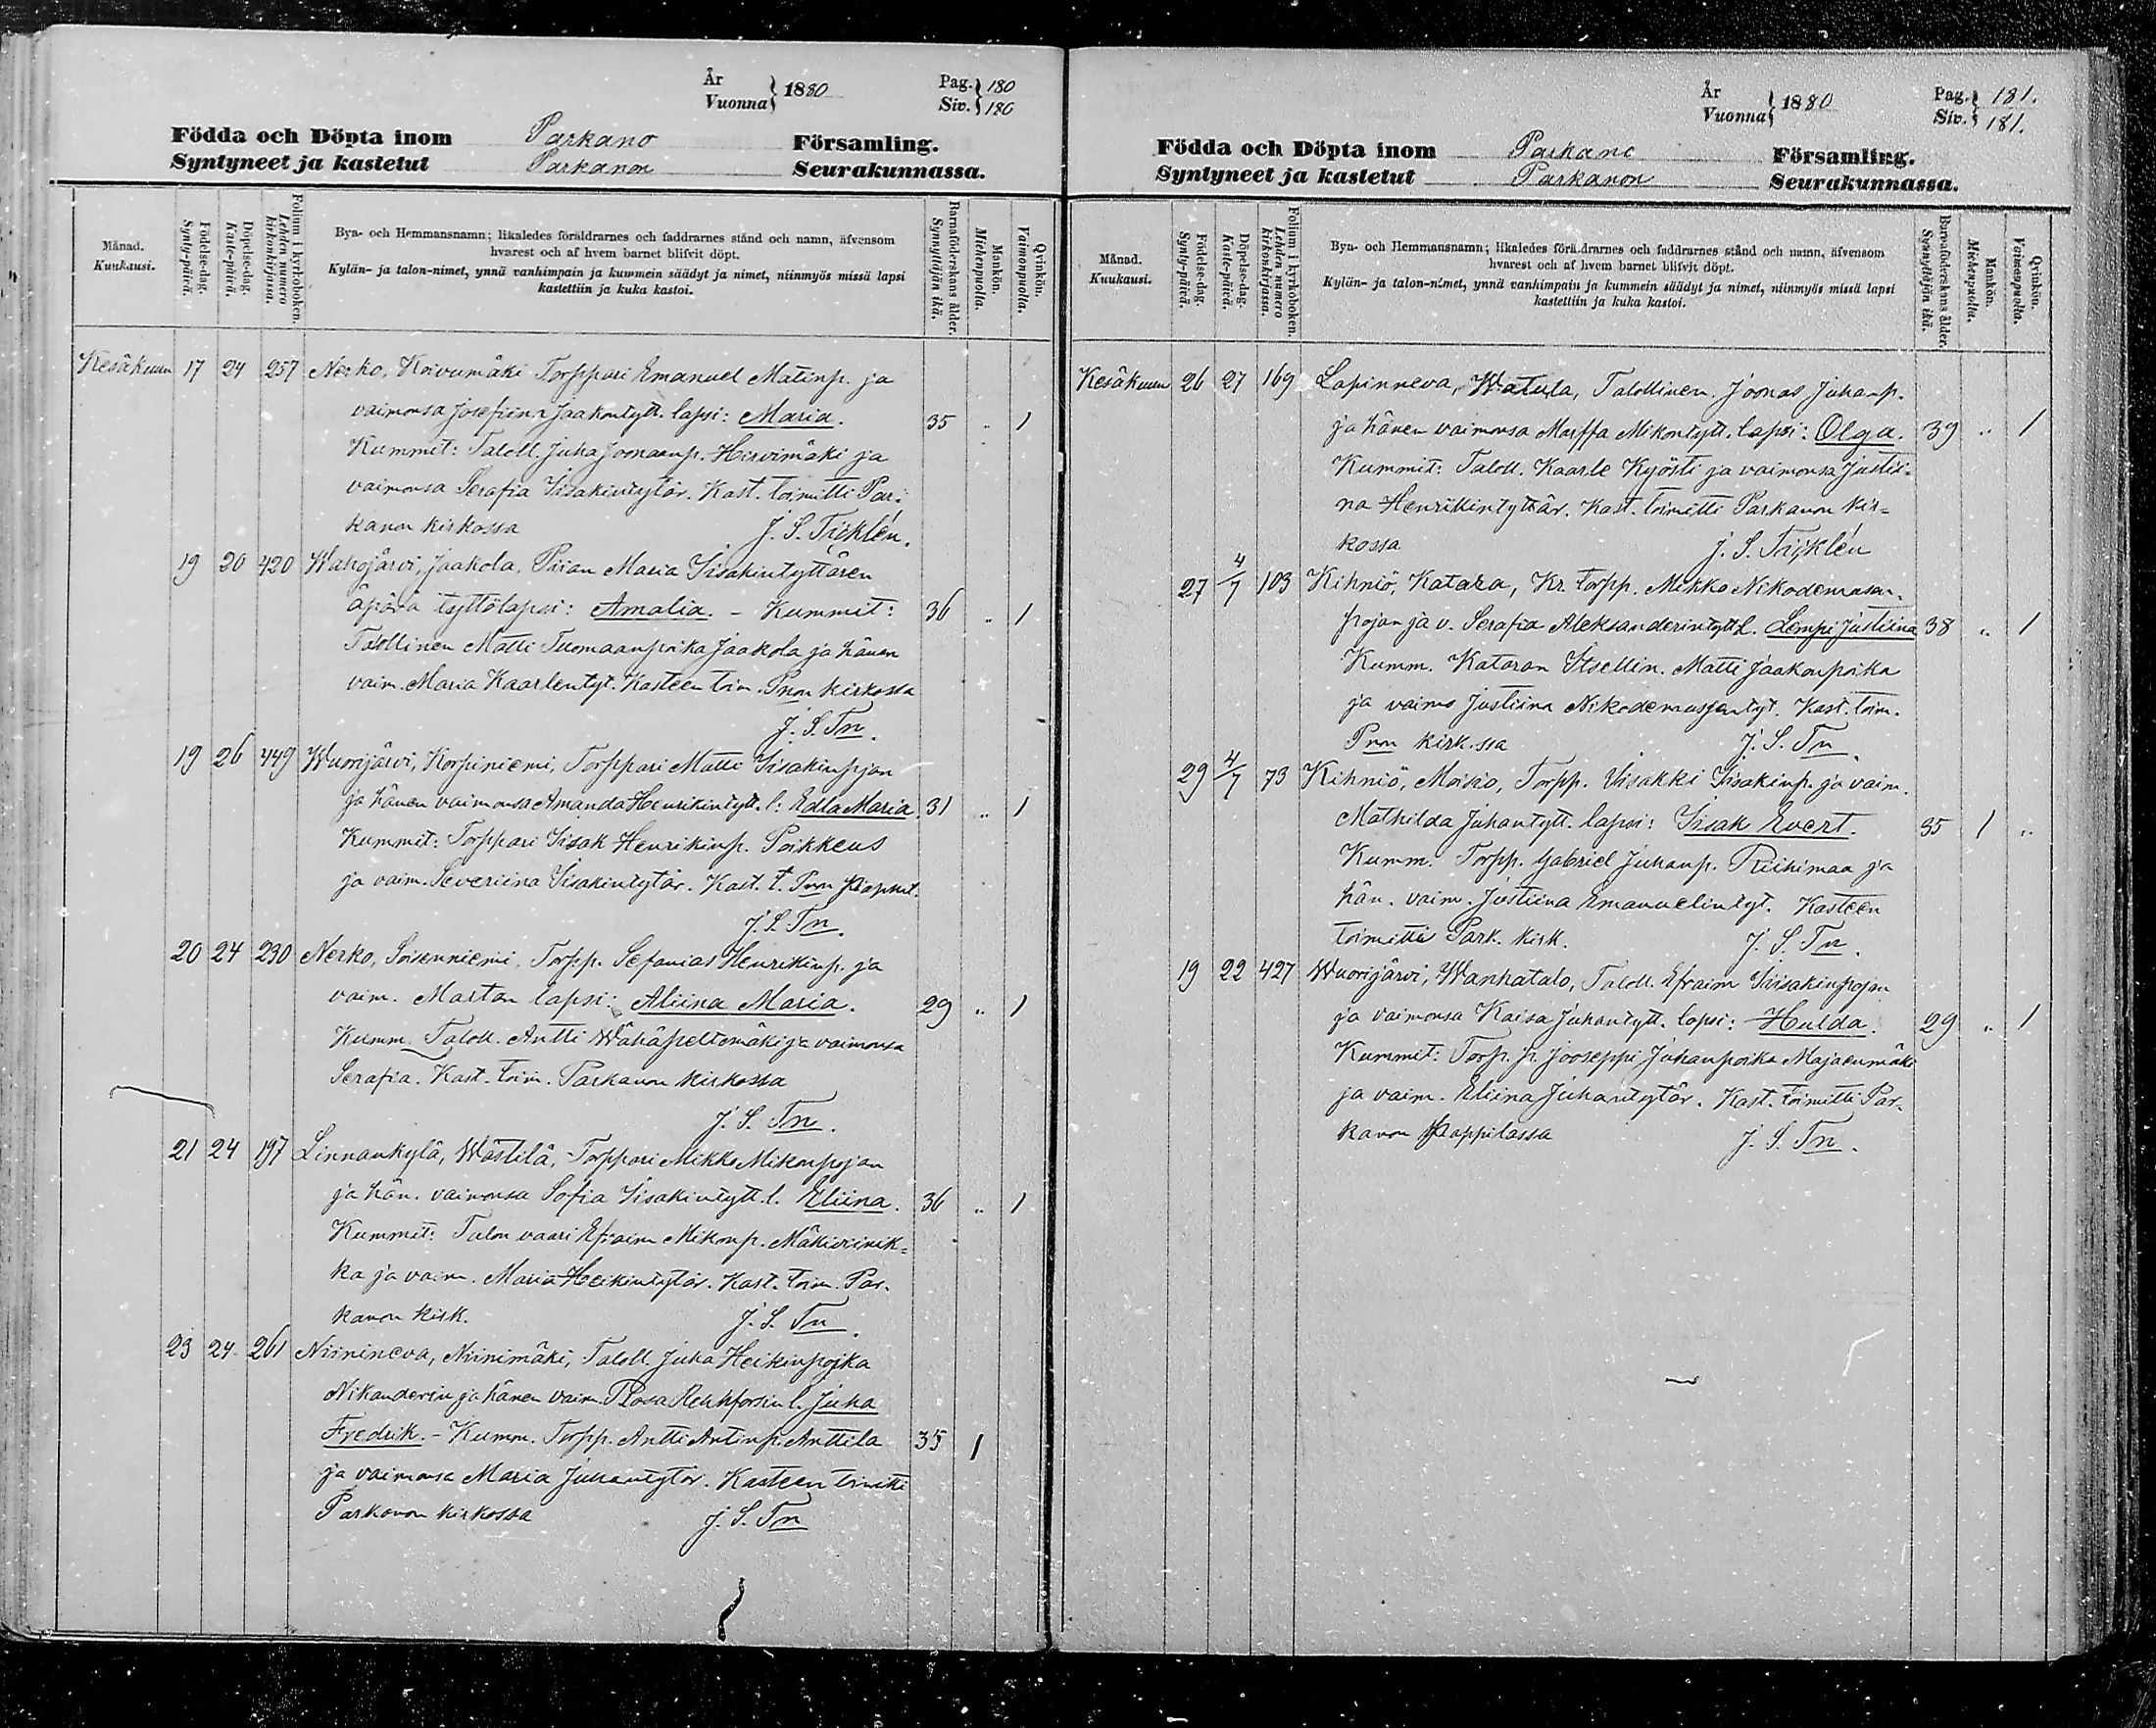 År
Vuonna } 1880
Pag. } 180
Siv. } 180
Födda och Döpta inom Parkano Församling.
Syntyneet ja kastetut Parkanon Seurakunnassa.
Månad.
Kuukausi.
Födelse-dag.
Synty-päivä.
Döpelse-dag.
Kaste-päivä.
Folium i kyrkoboken.
Lehden numero
kirkonkirjassa.
Bya- och Hemmansnamn; likaledes föräldrarnes och faddrarnes stånd och namn, äfvensom
hvarest och af hvem barnet blifvit döpt.
Kylän- ja talon-nimet, ynnä vanhimpain ja kummein säädyt ja nimet, niinmyös missä lapsi
kastettiin ja kuka kastoi.
Barnaföderskans ålder.
Synnyttäjän ikä.
Mankön.
Miehenpuolta.
Qvinkön.
Vaimonpuolta.
Kesäkuun 17 24 257 Nerko, Koivumäki Torppari Emanuel Matinp. ja
vaimonsa Josefiina Jaakontytt. lapsi: Maria. 35 „ 1
Kummit: Taloll. Juha Joonaanp. Hirvimäki ja
vaimonsa Serafia Iisakintytär. Kast. toimitti Par-
kanon kirkossa J. S. Ticklén.
19 20 420 Wahojärvi, Jaakola, Piian Maria Iisakintyttären
äpärä tyttölapsi: Amalia. - Kummit: 36 „ 1
Talollinen Matti Tuomaanpoika Jaakola ja hänen
vaim. Maria Kaarlentyt. Kasteen toim. Pnon kirkossa
J. S. Tn.
19 26 449 Wuorijärvi, Korpiniemi, Torppari Matti Iisakinpojan
ja hänen vaimonsa Amanda Henrikintytt. l: Edla Maria 31 „ 1
Kummit: Torppari Iisak Henrikinp. Poikkeus
ja vaim. Severiina Iisakintytär. Kast. t. Pnon
J. S. Tn.
20 24 230 Nerko, Soisenniemi, Torpp. Sefanias Henrikinp. ja
vaim. Martan lapsi: Aliina Maria. 29 „ 1
Kumm. Taloll. Antti Wähäpeltomäki ja vaimonsa
Serafia. Kast. toim. Parkanon kirkossa
J. S. Tn.
21 24 197 Linnankylä, Wästilä, Torppari Mikko Mikonpojan
ja hän. vaimonsa Sofia Iisakintytt. l. Eliina. 36 „ 1
Kummit: Talon vaari Efraim Mikonp. Mäkiviinik-
ka ja vaim. Maria Heikintytär. Kast. toim. Par-
kanon kirk. J. S. Tn.
23 24 261 Niinineva, Niinimäki, Taloll. Juha Heikinpojka
Nikanderin ja hänen vaim. Rosa l. Juha
Fredrik. - Kumm. Torpp. Antti Antinp. Anttila 35 1
ja vaimonsa Maria Juhantytär. Kasteen toimitti
Parkanon kirkossa J. S. Tn
År
Vuonna } 1880
Pag. } 181.
Siv. } 181.
Födda och Döpta inom Parkano Församling.
Syntyneet ja kastetut Parkanon Seurakunnassa.
Månad.
Kuukausi.
Födelse-dag.
Synty-päivä.
Döpelse-dag.
Kaste-päivä.
Folium i kyrkoboken.
Lehden numero
kirkonkirjassa.
Bya- och Hemmansnamn; likaledes föräldrarnes och faddrarnes stånd och namn, äfvensom
hvarest och af hvem barnet blifvit döpt.
Kylän- ja talon-nimet, ynnä vanhimpain ja kummein säädyt ja nimet, niinmyös missä lapsi
kastettiin ja kuka kastoi.
Barnaföderskans ålder.
Synnyttäjän ikä.
Mankön.
Miehenpuolta.
Qvinkön.
Vaimonpuolta.
Kesäkuun 26 27 169 Lapinneva, Watula, Talollinen Joonas Juhanp.
ja hänen vaimonsa Marffa Mikontytt. lapsi: Olga. 39 „ 1
Kummit: Taloll. Kaarle Kyösti ja vaimonsa Justii-
na Henrikintyttär. Kast. toimitti Parkanon kir-
kossa J. S. Ticklén
27 4/7 103 Kihniö, Katara, Kr. torpp. Mikko Nikodemusen-
pojan ja v. Serafia Aleksanderintytt l. Lempi Justiina 38 „ 1
Kumm. Kataran Itsellin. Matti Jaakonpoika
ja vaimo Justiina Nikodemusentyt. Kast. toim.
Pnon kirkossa J. S. Tn.
29 4/7 73 Kihniö, Moisio, Torpp. Iisakki Iisakinp. ja vaim.
Mathilda Juhantytt. lapsi: Iisak Evert. 35 1 „
Kumm. Torpp. Gabriel Juhanp. Riihimaa ja
hän. vaim. Justiina Emanuelintyt. Kasteen
toimitti Park. kirk. J. S. Tn.
19 22 427 Wuorijärvi, Wanhatalo, Taloll. Efraim Iisakinpojan
ja vaimonsa Kaisa Juhantytt. lapsi: Hulda. 29 „ 1
Kummit: Torp. p. Jooseppi Juhanpoika Majaenmäki
ja vaim. Eliina Juhantytär. Kast. toimitti Par-
kanon Pappilassa J. S. Tn.